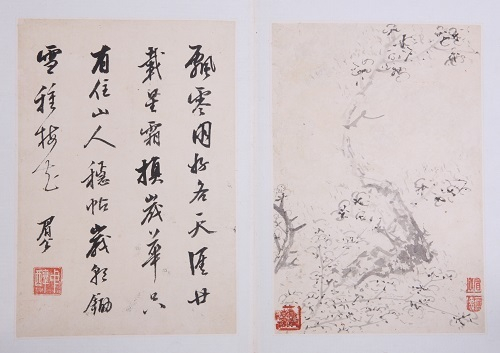 飄零同好各天涯廿
載星霜損歲華只
有住山人穩帖歲鋤
雪種梅花